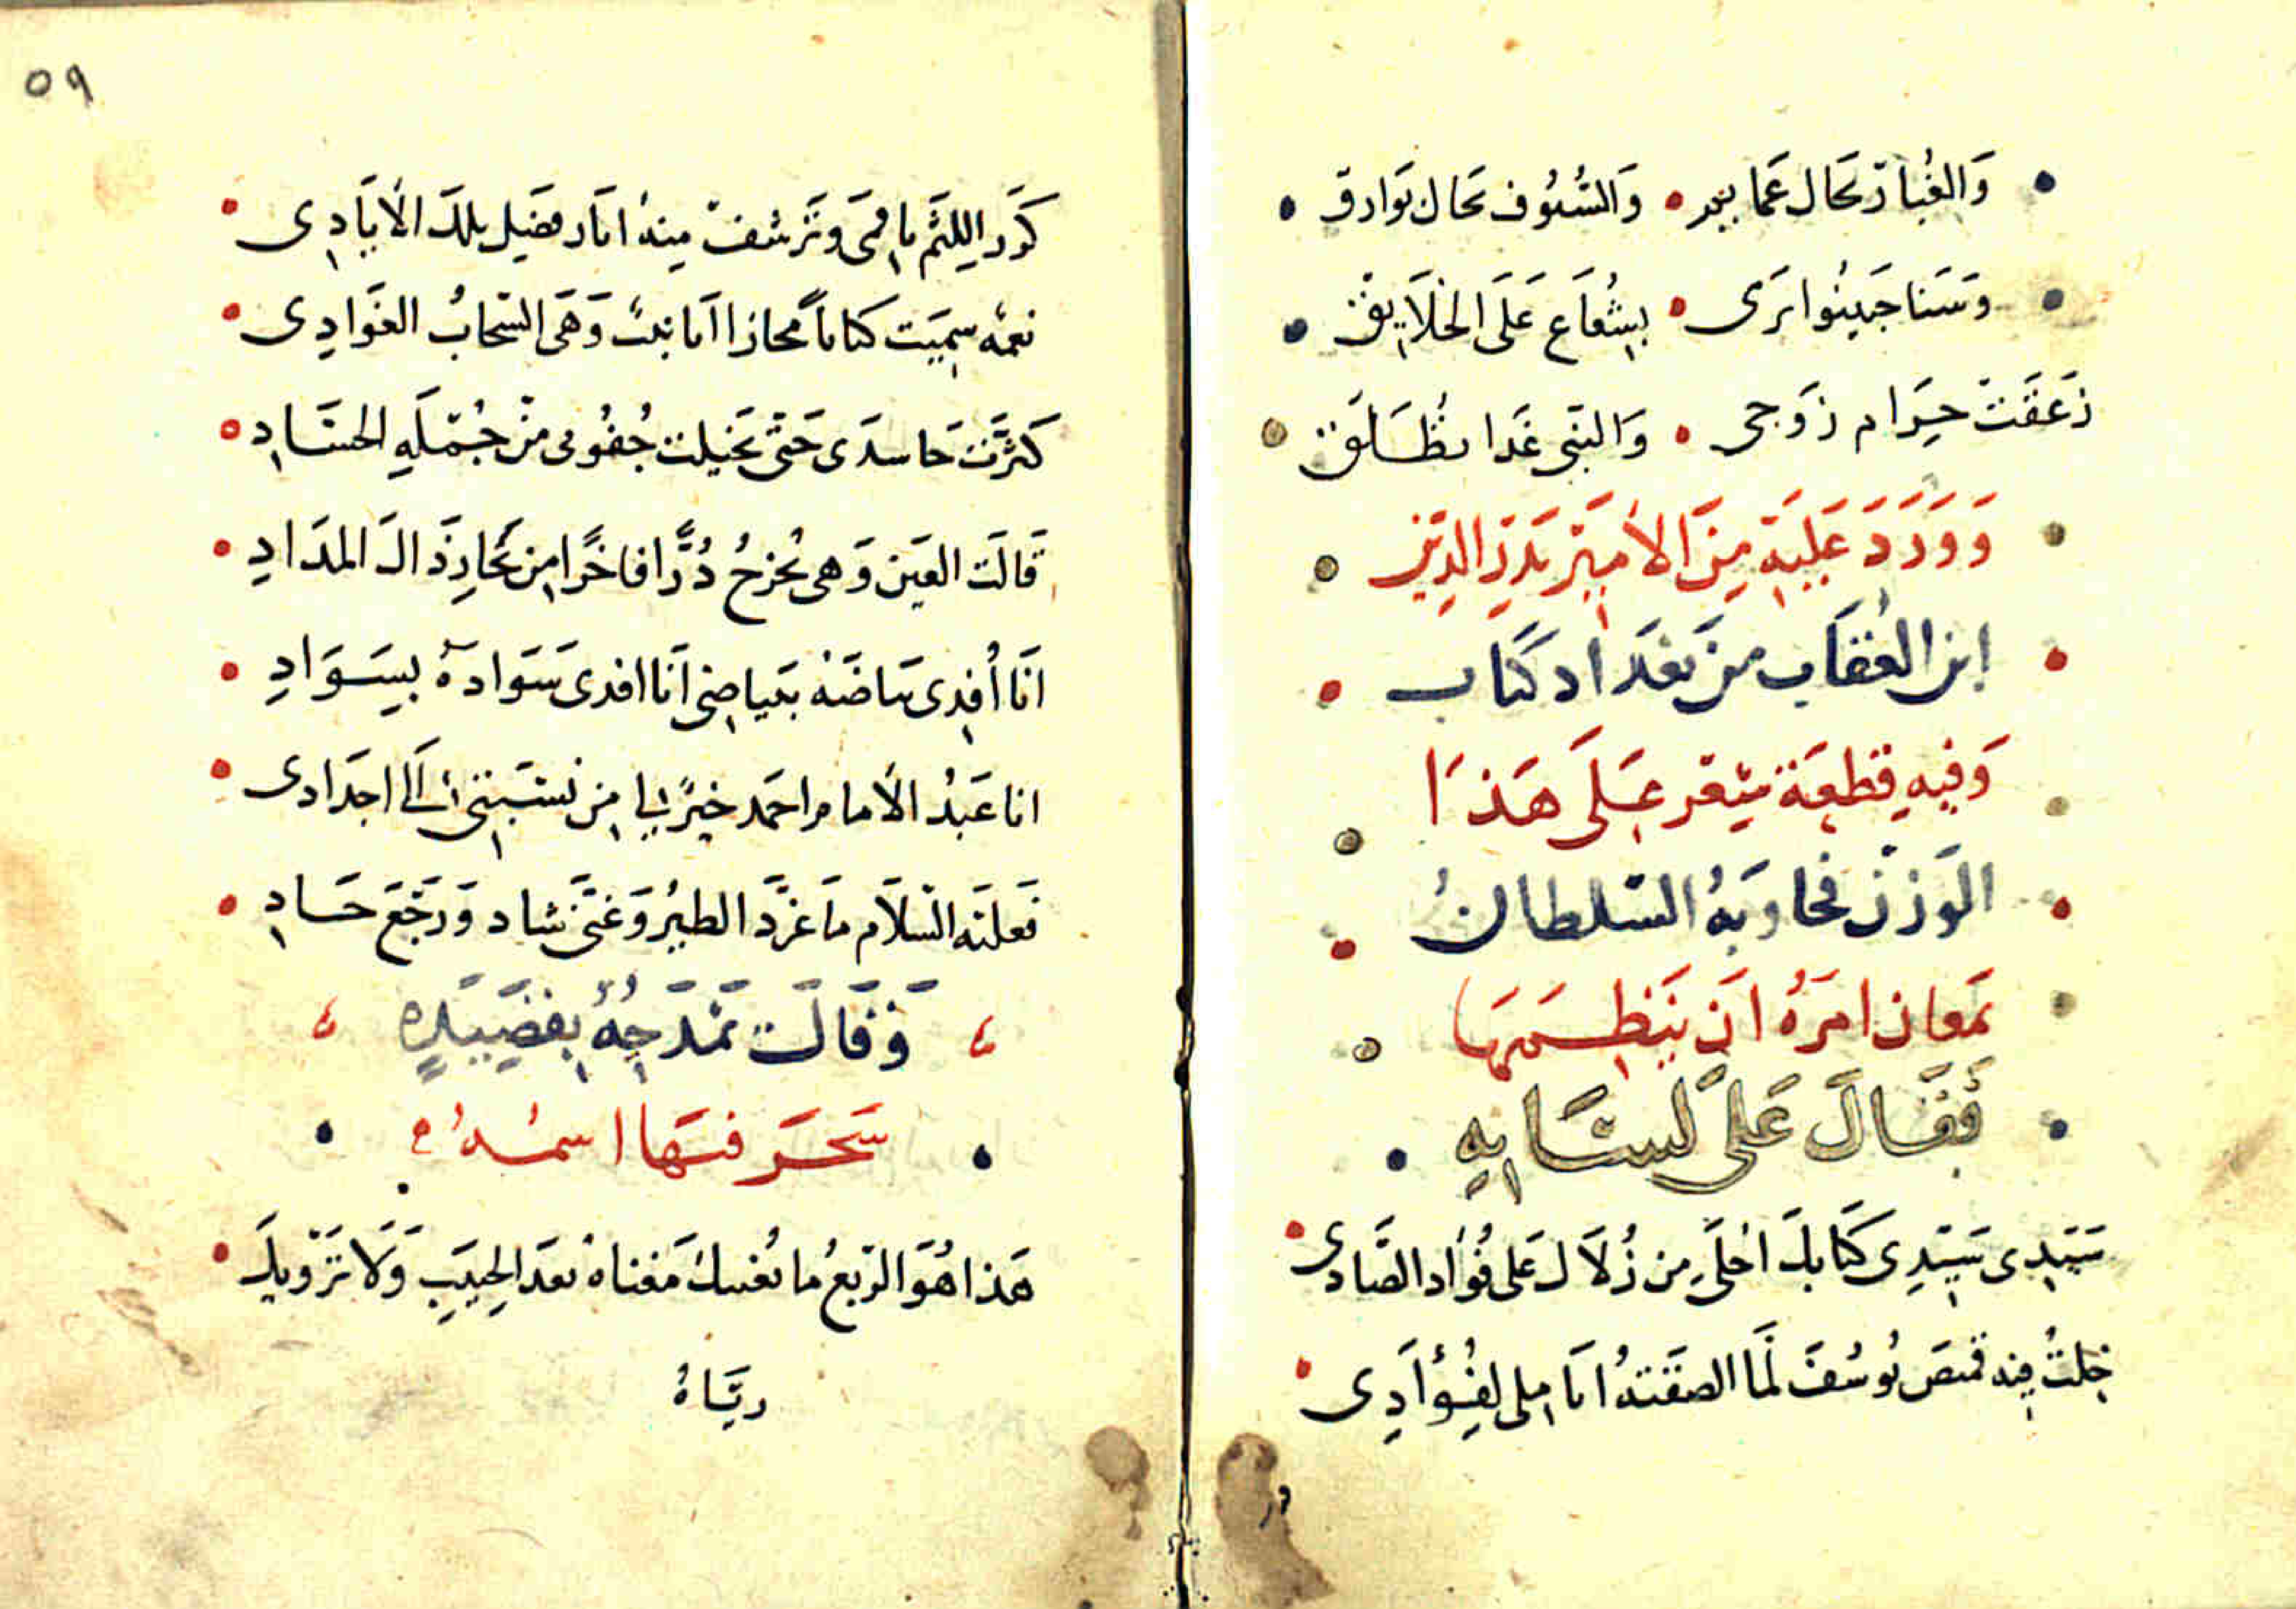 وَالغُبار تحَال عَما بخر • وَالسُّيُوف تحَال بَوارق
وَسَنا جَبينُوا يَرَى • بِشُعَاع عَلَى الخلَايِق
زَعَقَتْ حِرَام زَوجى • وَالنَبّى غَدا نطَلَق
وَوَرَدَ عَلَيْهِ مِنَ الأمِيْر بَدرِ الدِّيْن
ابن العُقاب منْ بغدَاد كتاب
وَفِيهِ قِطعَة شِعْر عَلَى هَذَا
الوَزْن فجاوَبَهُ السّلطانُ
بمَعان امَرَهُ ان يَنظِمَها
فَقَالَ عَلى لسَانِهِ
سَيّدِى سَيّدِى كتَابكَ احْلَى مِن زُلَال عَلى فُؤاد الصَّادى
خِلتُ فِيه قمِصَ يُوسُفَ لمَّا الصقَتهُ انَامِلى لِفُؤادِى
كَرر اللثم يا فمى وَتَرشفْ مِنهُ اثار فضَل تلكَ الأيَادِى
نعمْه سِميَت كتاباً مجازا انَا نلتُ وَهىَ السّحابُ الغَوادِى
كثرَّتْ حَاسدَى حَتّى تخيلت جُفُونى منْ جُمْلَهِ الحسَّادِ
قالَت العَين وَهى تخرجُ دُرًّا فاخرًا مِن بحَارِ ذَالَ المدَادِ
انَا أفدِى بيَاضَهُ ببَياضِى اَنا افدى سَوادَهُ بِسَوادِ
انا عَبدُ الأمام احمَد خيرٌ لى مِن نسْبَتِى الَى اجدَادى
فَعليَه السّلَام مَا غرَّدَ الطيرُ وَغنَّى شاد وَرَجّعَ حَادِ
وَقَالَت تمْدَحِهُ بِقَصِيدَةٍ
سَحَر فيَها اسمُهُ
هَذا هُوَ الرّبعُ ما يُغنيكَ مَغناهُ بعدَ الحِبيَبِ وَلَا تَرْويكَ
ريَّاهُ